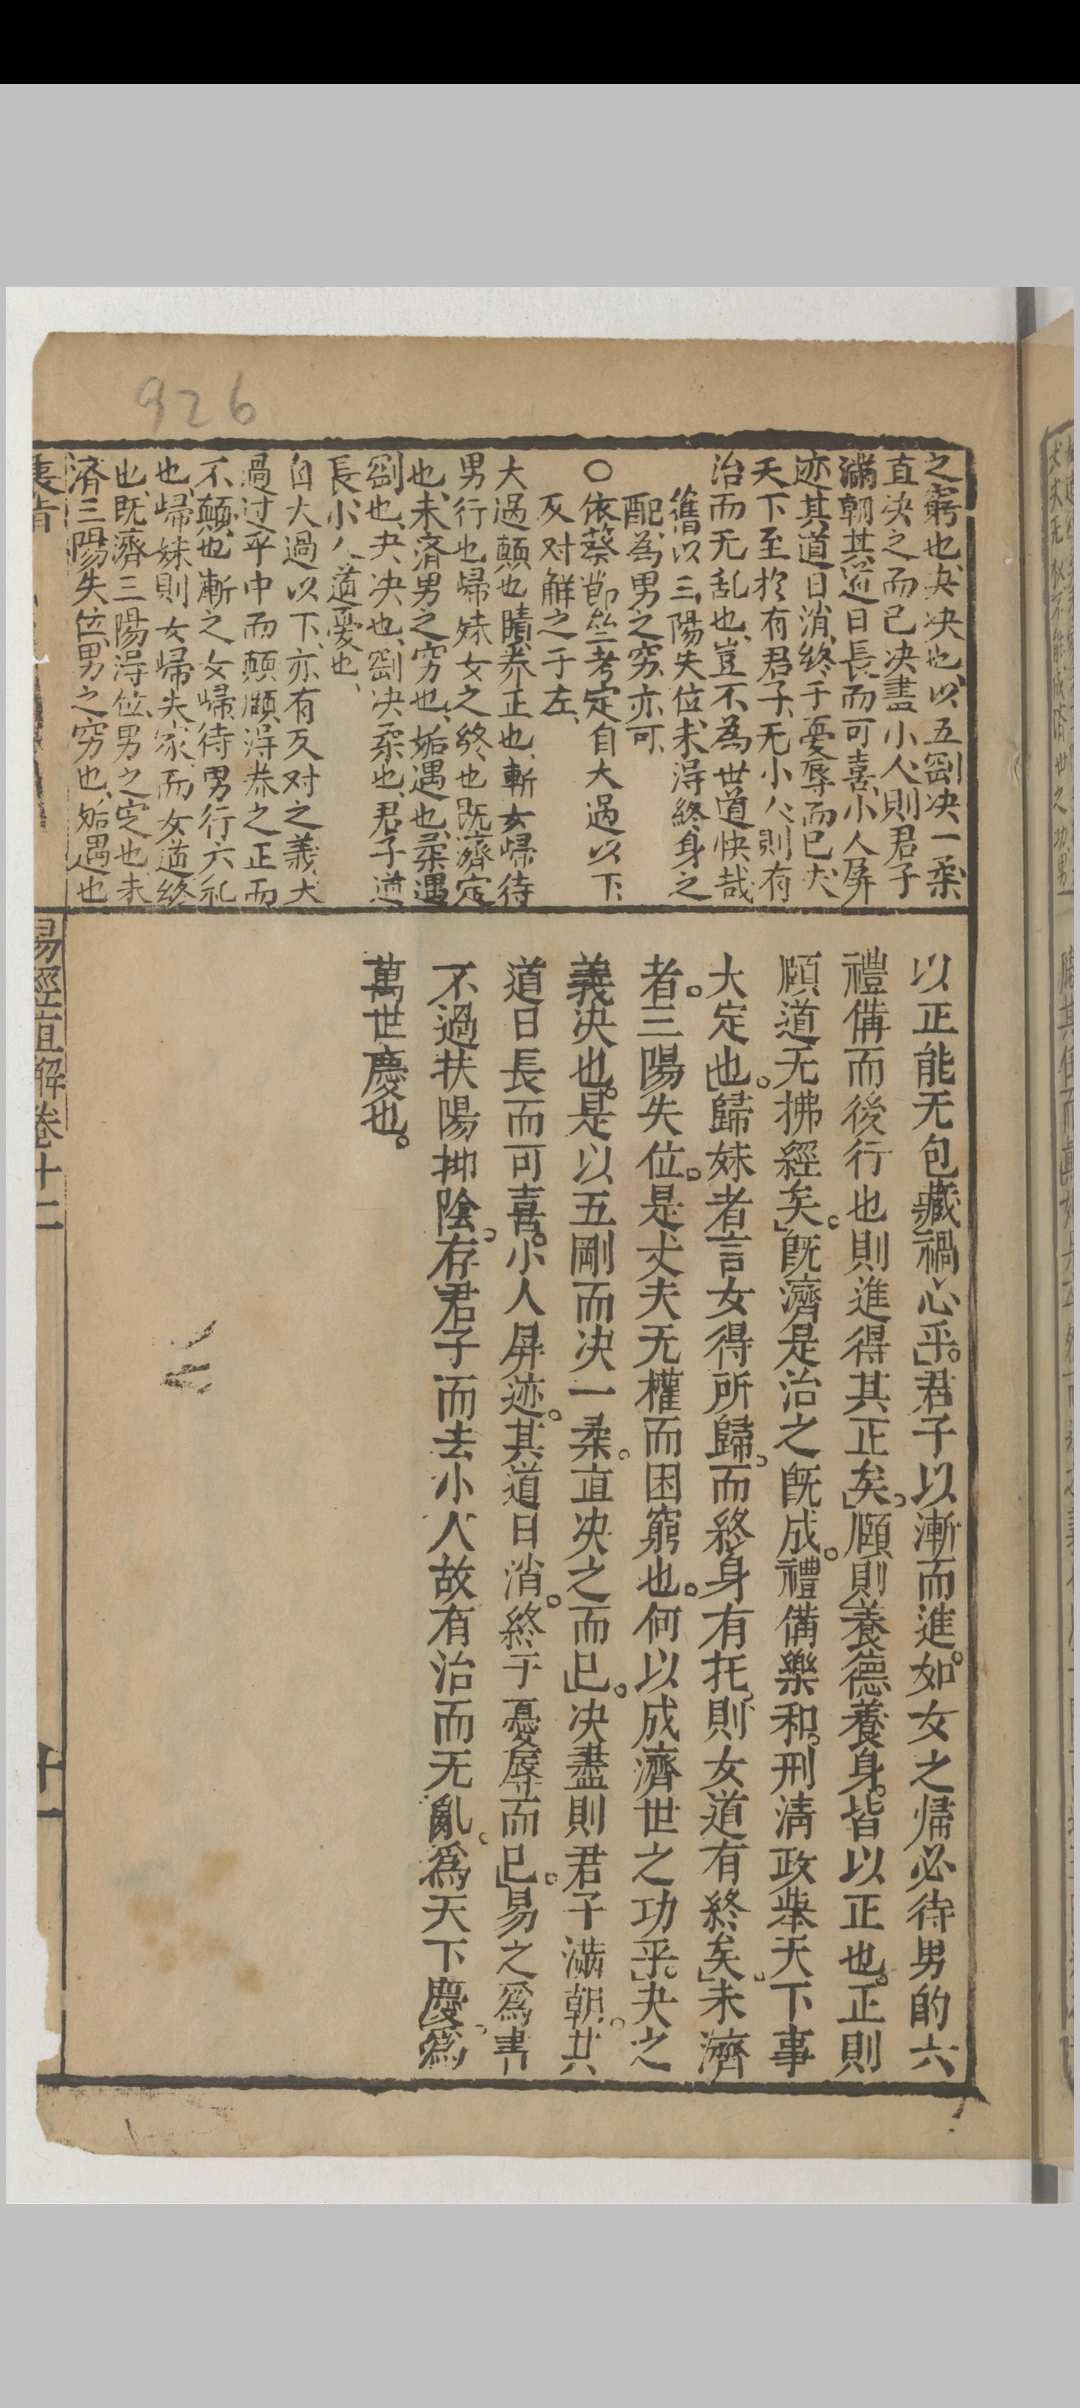 926
之窮也夬决也以五剛决一柔
直决之而已决盡小人則君子
滿朝其道日長而可喜小人屏
迹其道日消終于憂辱而已夫
天下至於有君子无小人則有
治而无乱也豈不為世道快哉
舊以三陽失位未得終身之
配為男之窮亦可
○依蔡節竺考定自大過以下
反对解之于左
大過顛也頤养正也漸女歸待
男行也歸妹女之終也既濟定
也未濟男之穷也姤遇也柔遇
剛也夬决也剛决柔也君子道
長小人道憂也
自大過以下亦有反对之義大
過过乎中而顛頤得养之正而
不顛也漸之女歸待男行六礼
也歸妹則女歸夫家而女道終
也既濟三陽得位男之定也未
濟三陽失位男之穷也姤遇也
以正能无包藏禍心乎君子以漸而進如女之歸必待男的六
禮備而後行也則進得其正矣頤則養德養身皆以正也正則
頤道无拂經矣既濟是治之既成禮備樂和刑清政舉天下事
大定也歸妹者言女得所歸而終身有托則女道有終矣未濟
者三陽失位是丈夫无權而困窮也何以成濟世之功乎夬之
義决也是以五剛而决一柔直决之而已决盡則君子滿朝其
道日長而可喜小人屏迹其道日消終于憂辱而已易之爲書
不過扶陽抑陰存君子而去小人故有治而无亂爲天下慶爲
萬世慶也
易經直解卷十二
十一